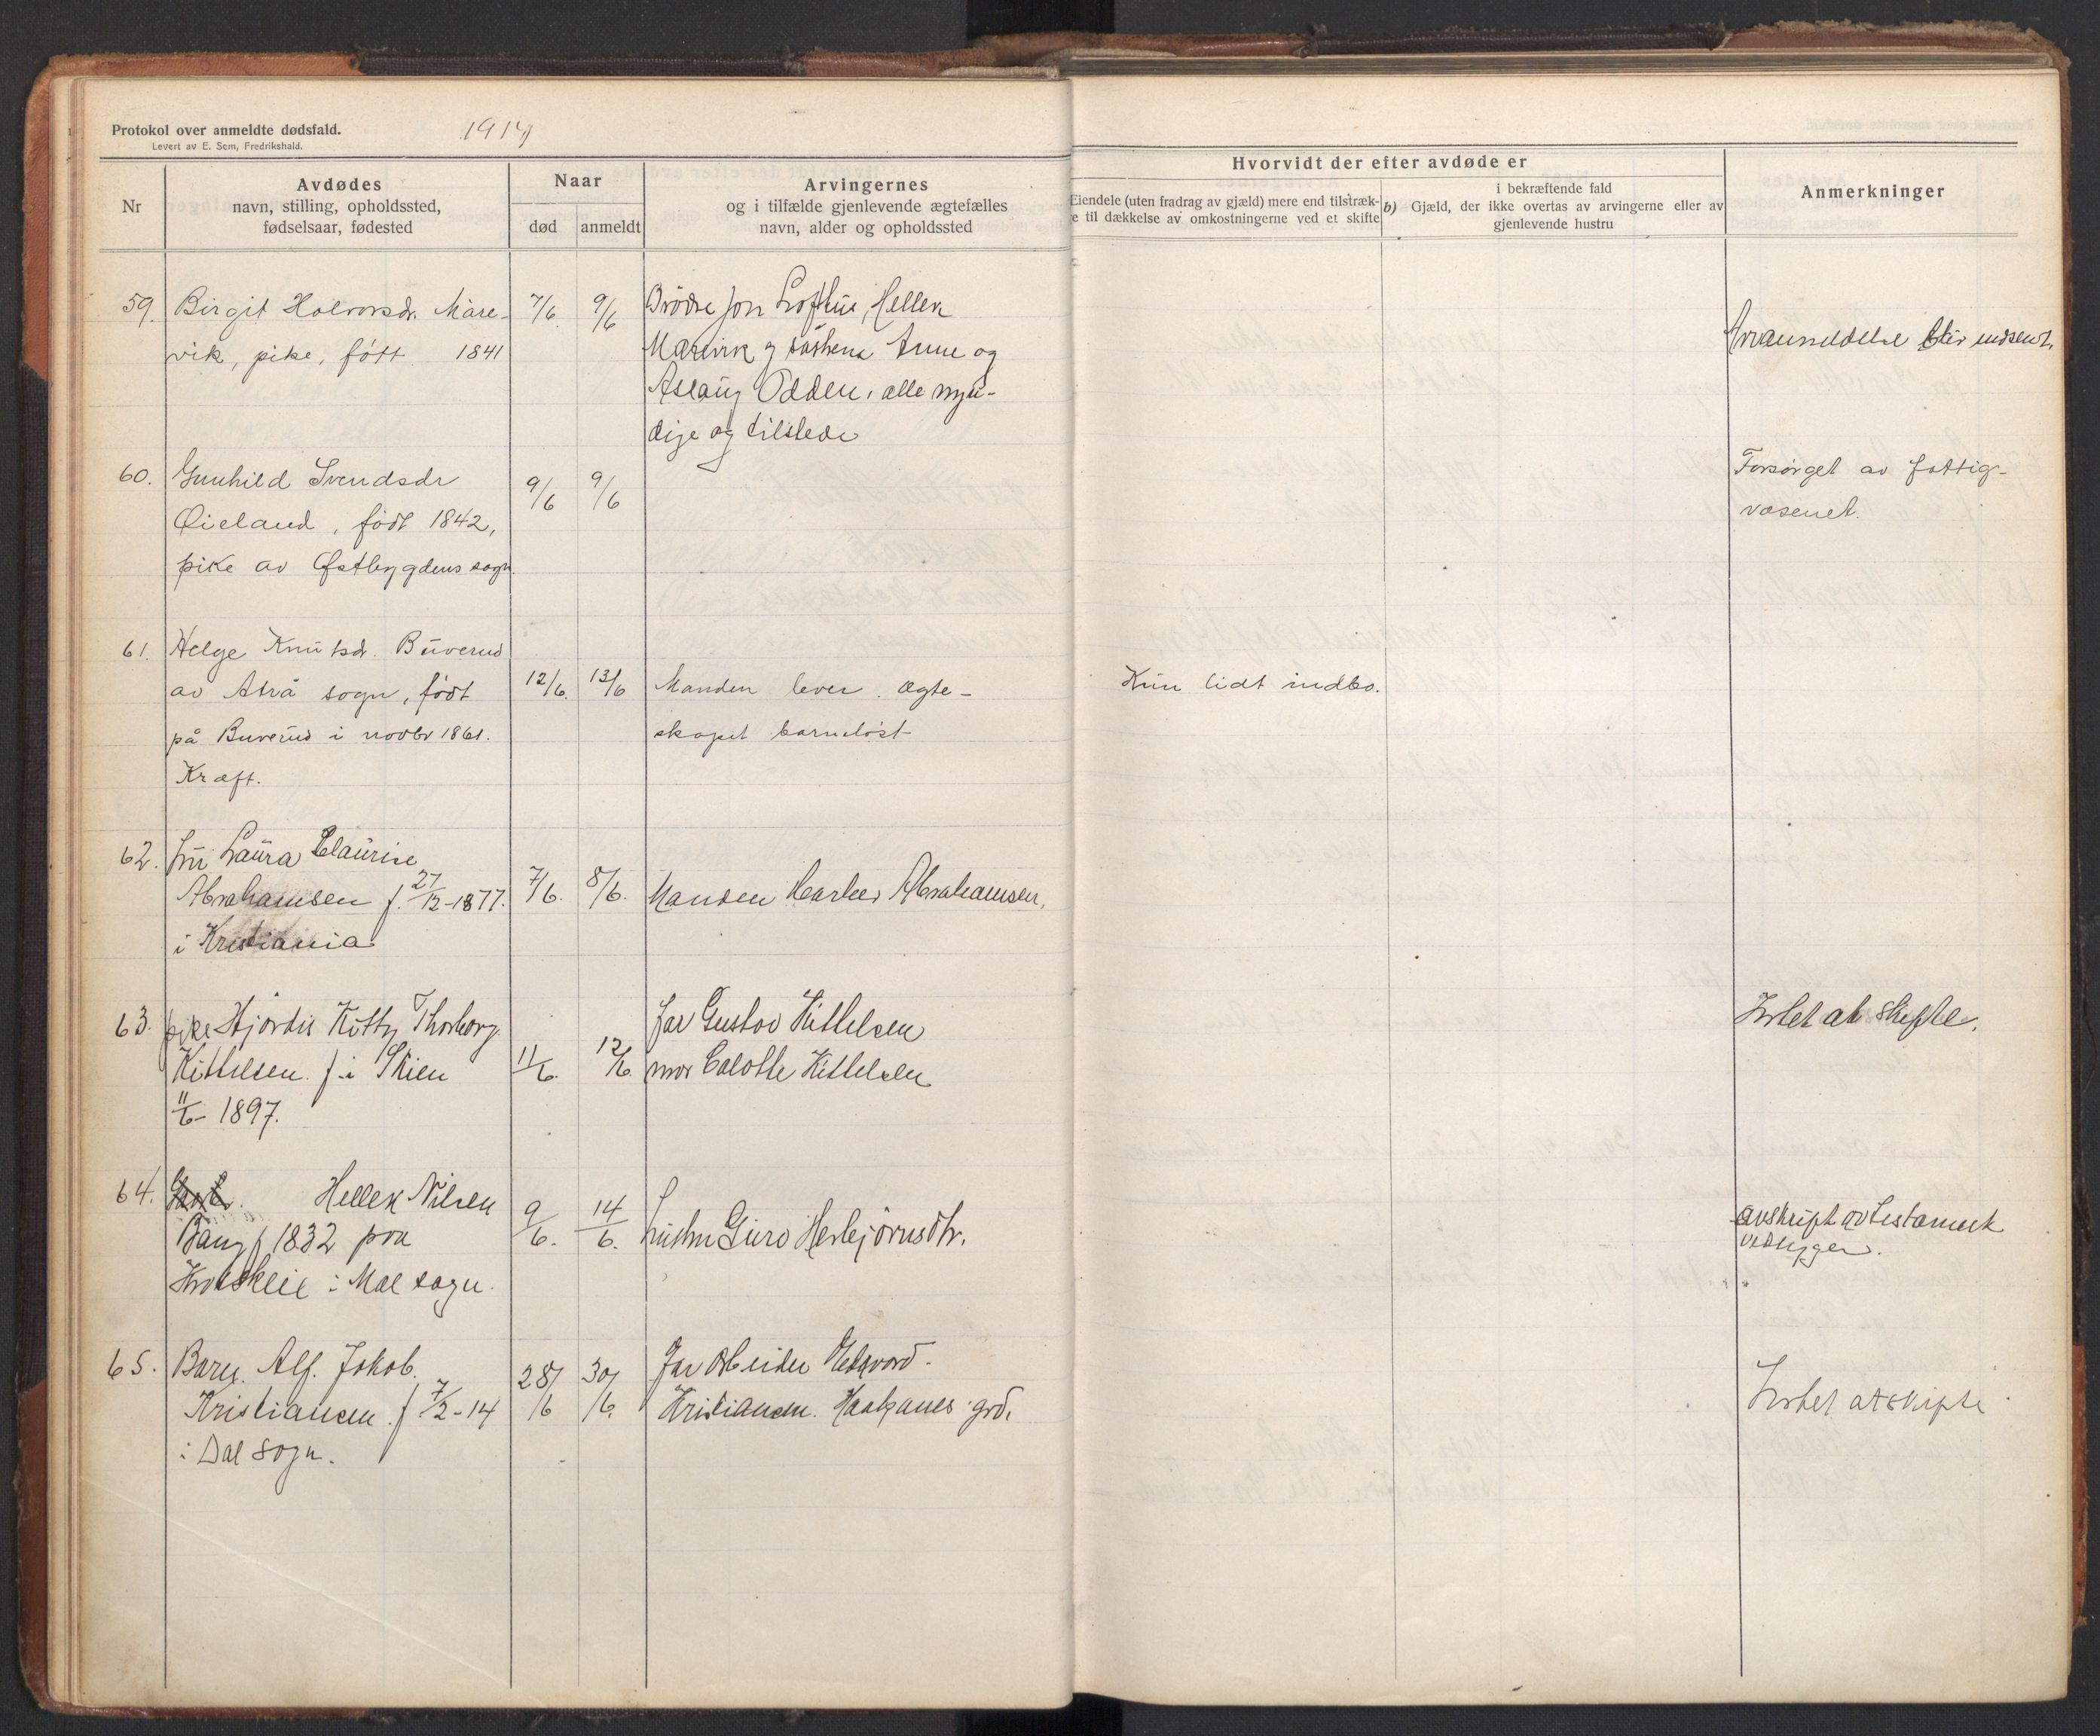 Protokol over anmeldte dødsfald.
Levert av E. Sem, Fredrikshald.
1914
Nr
Avdødes
navn, stilling, opholdssted,
fødselsaar, fødested
Naar
død
anmeldt
Arvingernes
og i tilfælde gjenlevende ægtefælles
navn, alder og opholdssted
Hvorvidt der efter avdøde er
Eiendele (uten fradrag av gjæld) mere end tilstræk-
e til dækkelse av omkostningerne ved et skifte
i bekræftende fald
b) Gjæld, der ikke overtas av arvingerne eller av
gjenlevende hustru
Anmerkninger
59. Birgit Halvorsdr. Mare-
vik, pike, født 1841
7/6 9/6
Brødre Jon Lofthus, Hellek
Marevik og søstrene Anne og
Aslaug Odden, alle myn-
dige og tilstede
Arvanmeldelse blir indsent.
60. Gunhild Svendsdr
Øieland, født 1842,
pike av Østbygdens sogn.
9/6 9/6
Forsørget av fattig-
væsenet.
61. Helge Knutsdr. Buverud
av Atrå sogn, født
på Buverud i novbr 1861.
Kræft.
12/6. 13/6
Manden lever. Ægte-
skapet barnløst
Kun lidt indbo.
62. Fru Laura Claurise
Abrahamsen f. 27/12-1877.
i Kristiania
7/6. 8/6.
Manden Abrahamsen.
63. pike Hjørdis Kitty Thorborg
Kittelsen f. i Skien
11/6- 1897.
11/6. 12/6.
far Gustav Kittelsen
mor Calotte Kittelsen
Intet at skifte.
64. Hellek Nilsen
Bang f 1832 paa
i Mæl sogn.
9/6. 14/6.
hustru Guro Herbjørnsdtr.
avskript av testament
vedligger.
65. Barn. Alf. Jakob.
Kristiansen. f 7/2-14
i Dal sogn.
28/6 30/6.
Far arbeider Edvard
Kristiansen. grd.
Intet at skifte